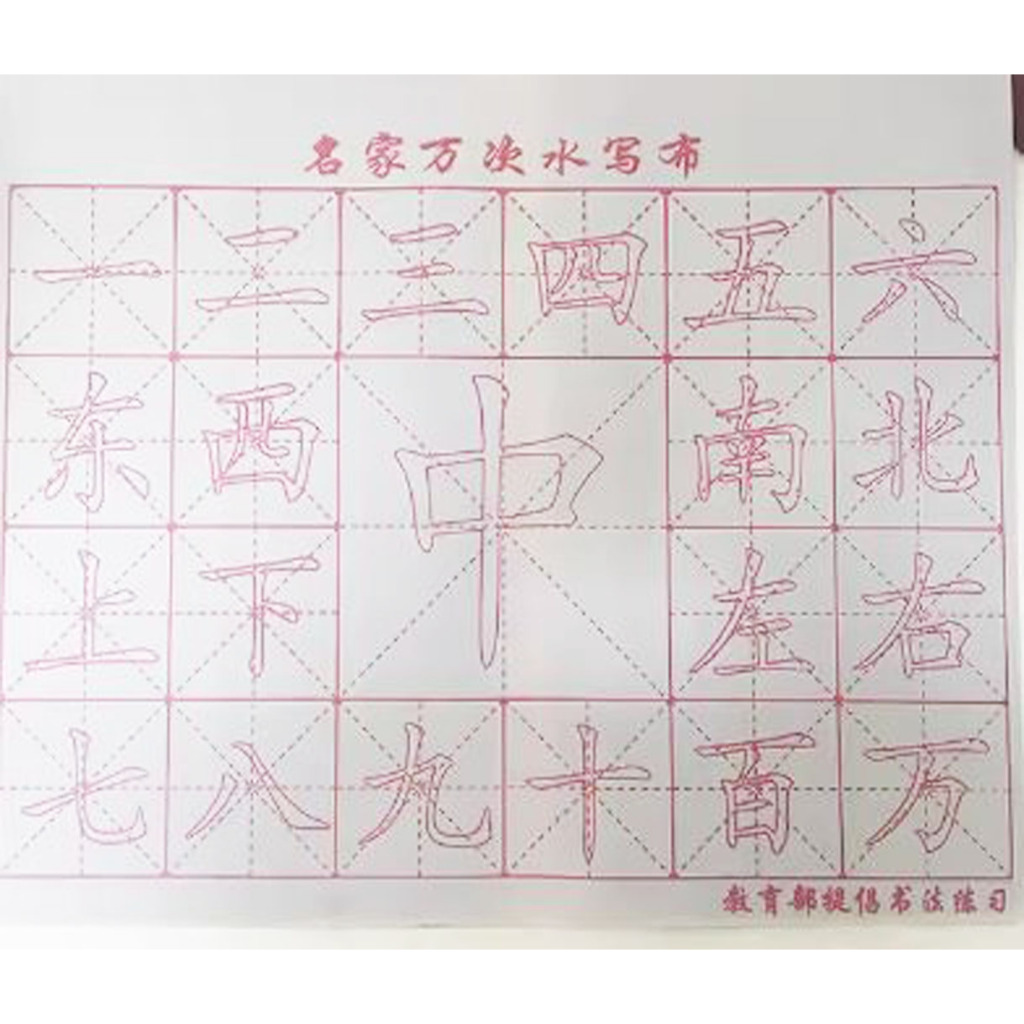 名家万次水写布
一二三四五六
东西中南北
上下左右
七八九十百万
教育部提倡书法练习